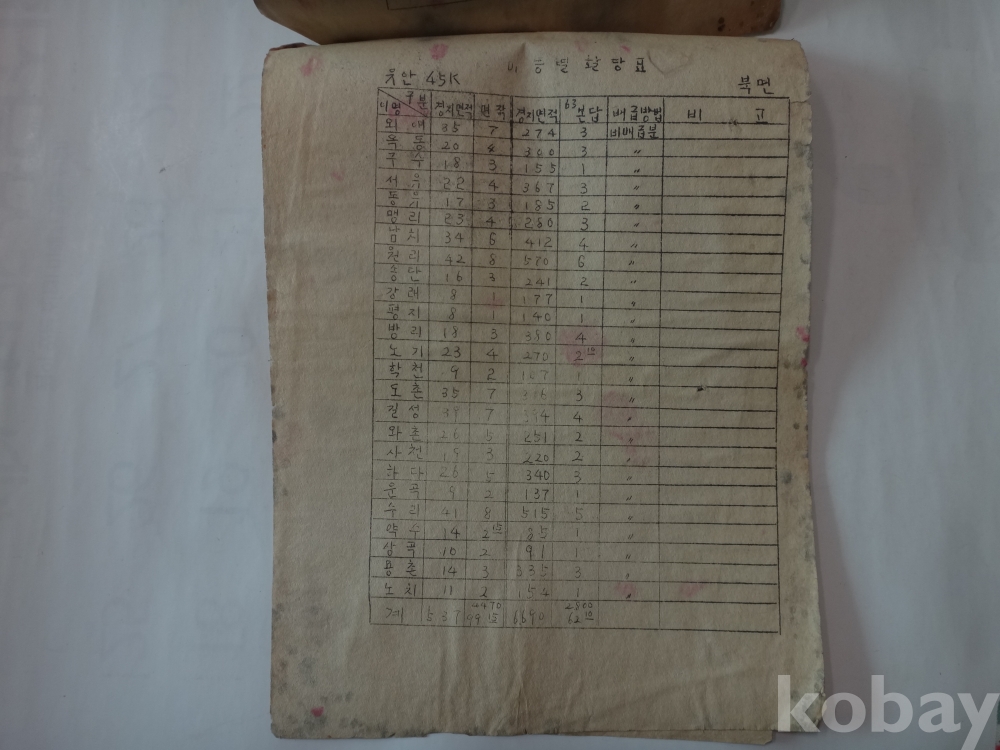 비 종별 할당표
웃안 45K 북면
구분 리명 경지면적 면작 경지면적 63 본답 배급방법 비 고
외애 35 7 274 3 비배급분
옥동 20 4 300 3 〃
구수 18 3 155 1 〃
서욱 22 4 367 3 〃
17 3 185 2 〃
맹리 23 4 280 3 〃
남치 34 6 412 4 〃
원리 42 8 570 6 〃
송단 16 3 241 2 〃
강례 8 1 177 1 〃
평지 8 1 140 1 〃
방리 18 3 380 4 〃
노기 23 4 270 2 15 〃
학천 9 2 1 〃
도촌 35 7 316 3 〃
질성 39 7 4 〃
와촌 26 5 251 2 〃
사천 19 3 220 2 〃
하다 26 5 340 3 〃
운곡 9 2 137 1 〃
수리 41 8 515 5 〃
약수 14 2 15 85 1 〃
상곡 10 2 91 1 〃
용촌 14 3 335 3 〃
노치 11 2 154 1 〃
계 537 4470 99 15 6690 2800 62 10
kobay